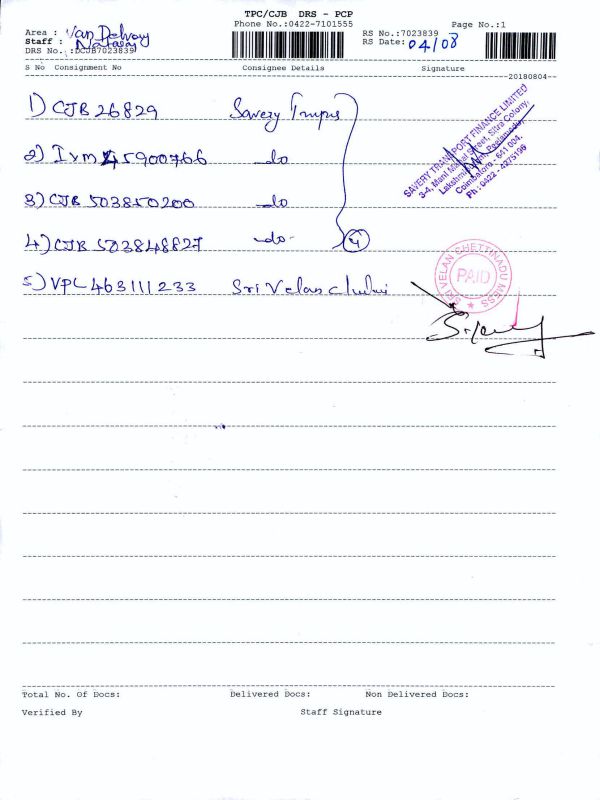 TPC/CJB DRS - PCP
Phone No.:0422-7101555
Page No.:1
Area : Van Delvery
Staff : Nataraj
DRS No.:DCJB7023839
RS No.:7023839
RS Date: 04/08
S No Consignment No Consignee Details Signature
20180804
1) CJB 26829 Savery
2) Ivm 45900766 do
3) CJB 503850200 do
4) CJB 503848827 -do- 4
5) VPL 463111233 Sri Velan
SAVERY TRANSPORT FINANCE LIMITED
3-4, Mani Street, Sitra Colony,
Coimbatore - 641 004.
Ph : 0422 - 4275196
SRI VELAN CHETTINADU MESS
PAID
Total No. Of Docs: Delivered Docs: Non Delivered Docs:
Verified By Staff Signature